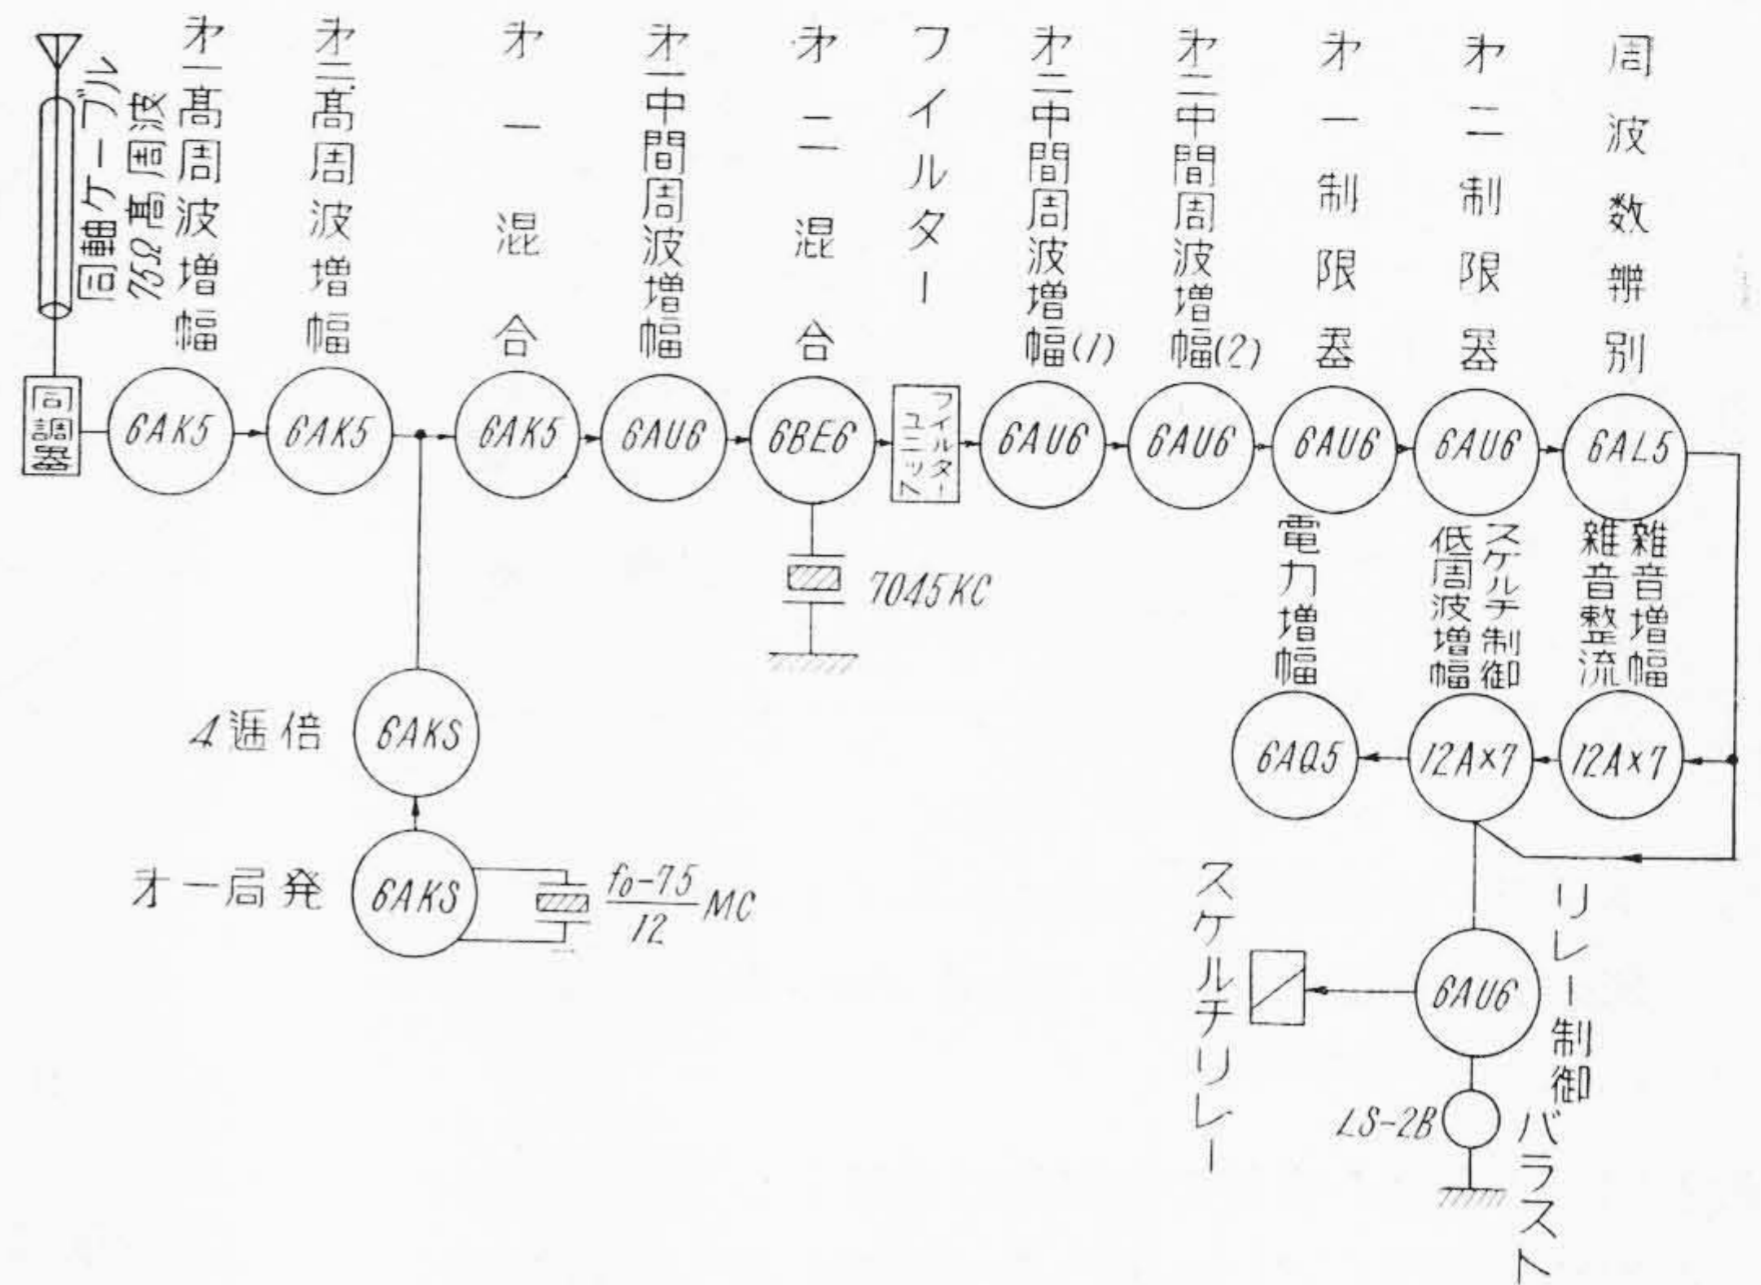 同軸ケーブル
75Ω高周波
才一高周波増幅
才二高周波増幅
才一混合
才一中間周波増幅
才二混合
フイルター
才二中間周波増幅(1)
才二中間周波増幅(2)
才一制限器
才二制限器
周波数辨別
同調器
6AK5
6AK5
6AK5
6AU6
6BE6
フイルター
ユニット
6AU6
6AU6
6AU6
6AU6
6AL5
7045KC
電力増幅
スケルチ制御
低周波増幅
雑音増幅
雑音整流
4逓倍
6AKS
6AQ5
12A×7
12A×7
才一局発
6AKS
f0-75
12
MC
スケルチリレー
6AU6
リレー制御
LS-2B
バラスト